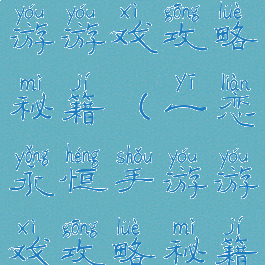 yóu yóu xì gōng lüè
游游戏攻略
mì jí yī liàn
秘籍（一恋
yǒng héng shǒu yóu yóu
永恒手游游
xì gōng lüè mì jí
戏攻略秘籍